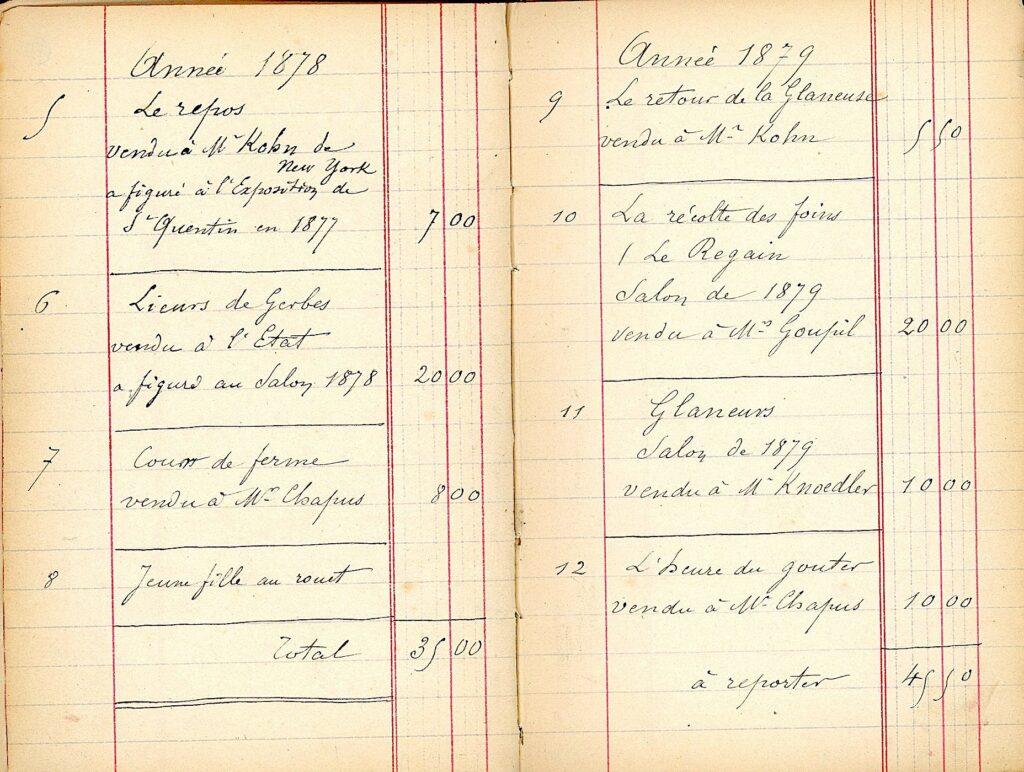 Année 1878
5 Le repos
vendu à Mr Kohn de
New York
a figuré à l'Exposition de
St Quentin en 1877 7 00
6 Lieurs de Gerbes
vendu à l'Etat
a figuré au Salon 1878 20 00
7 Cour de ferme
vendu à Mr Chapus 8 00
8 Jeune fille au rouet
Total 35 00
Année 1879
9 Le retour de la Glaneuse
vendu à Mr Kohn 5 50
10 La récolte des foins
( Le Regain
Salon de 1879
vendu à Mrs Goupil 20 00
11 Glaneurs
Salon de 1879
vendu à Mr Knoedler 10 00
12 L'heure du gouter
vendu à Mr Chapus 10 00
à reporter 45 50